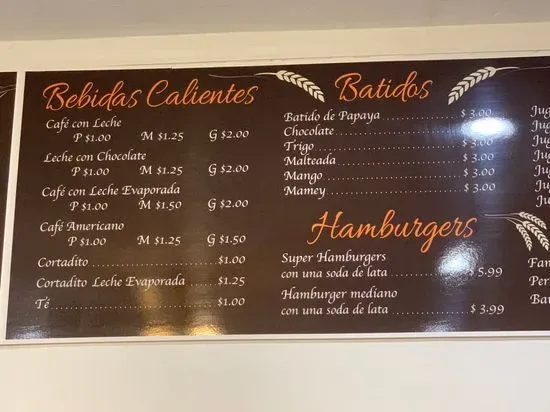 Bebidas Calientes
Café con Leche
P $1.00 M $1.25 G $2.00
Leche con Chocolate
P $1.00 M $1.25 G $2.00
Café con Leche Evaporada
P $1.00 M $1.50 G $2.00
Café Americano
P $1.00 M $1.25 G $1.50
Cortadito $1.00
Cortadito Leche Evaporada $1.25
Té $1.00
Batidos
Batido de Papaya $ 3.00
Chocolate $ 3.00
Trigo $ 3.00
Malteada $ 3.00
Mango $ 3.00
Mamey $ 3.00
Hamburgers
Super Hamburgers
con una soda de lata $ 5.99
Hamburger mediano
con una soda de lata $ 3.99